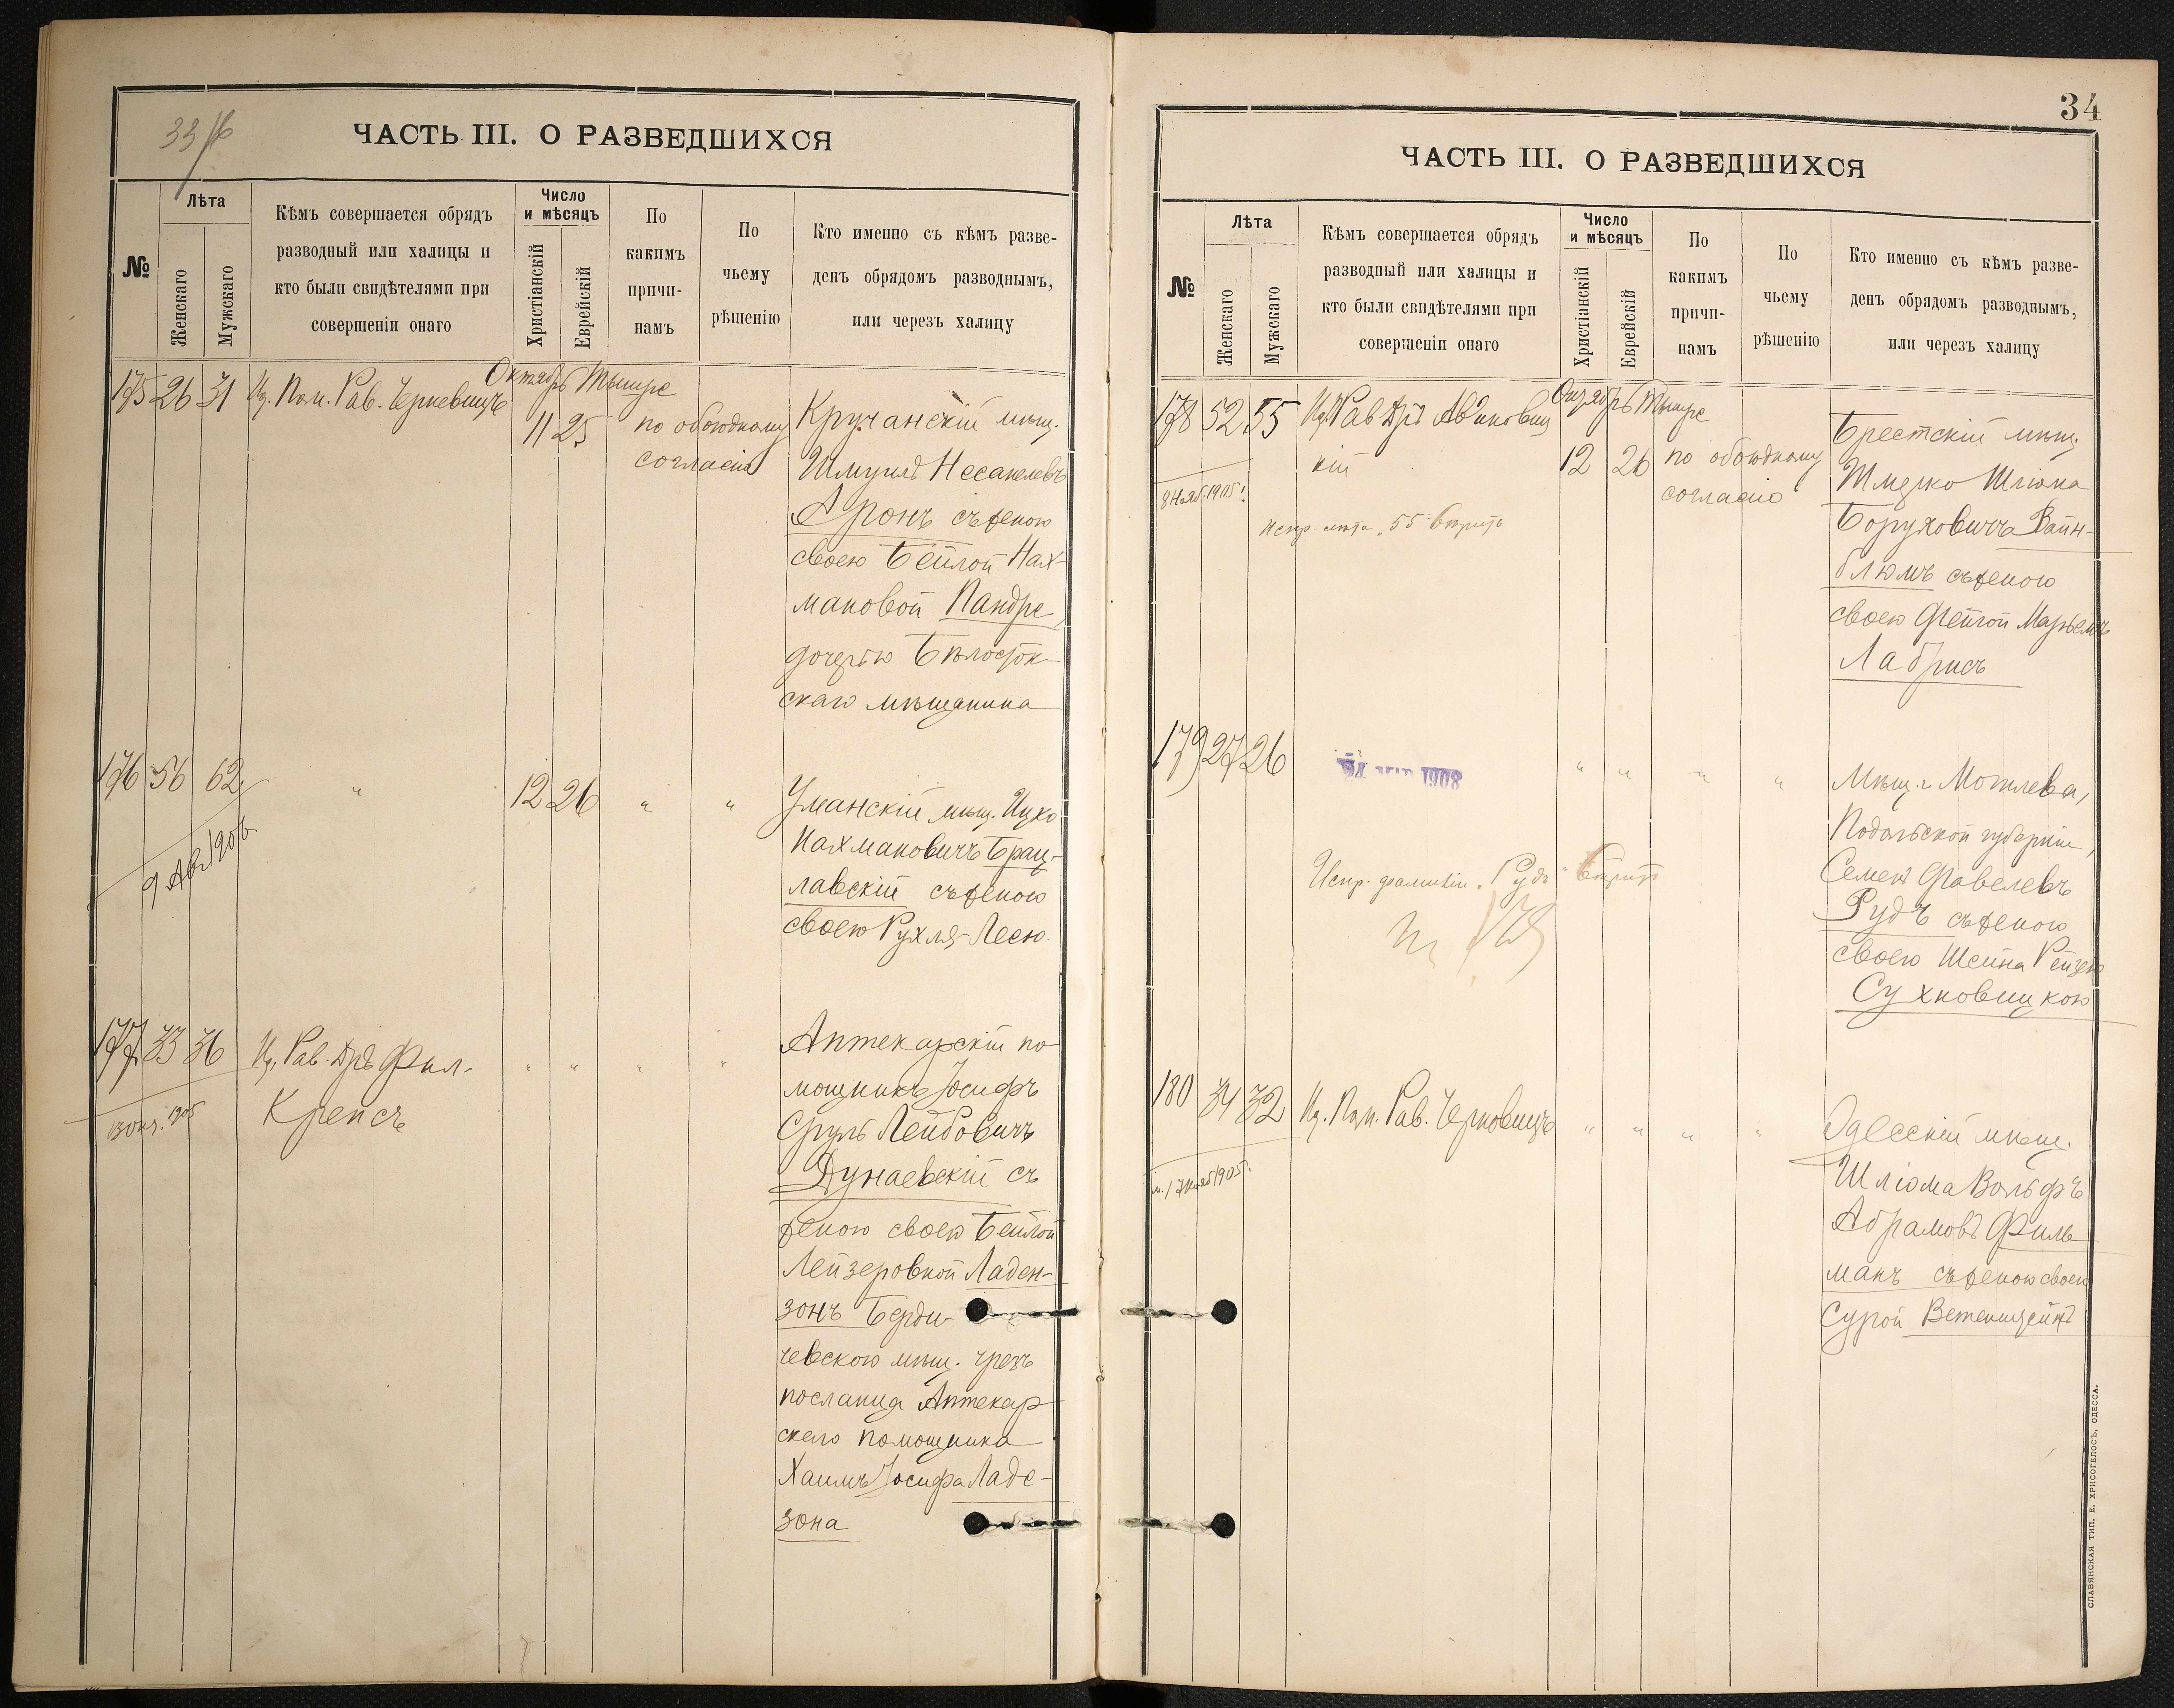 33 /б
ЧАСТЬ III. О РАЗВЕДШИХСЯ
№
Лѣта
Женскаго
Мужскаго
Кѣмъ совершается обрядъ
разводный или халицы и
кто были свидѣтелями при
совершеніи онаго
Число
и мѣсяцъ
Христіанскій
Еврейскій
По
какимъ
причи-
намъ
По
чьему
рѣшенію
Кто именно съ кѣмъ разве-
денъ обрядомъ разводнымъ,
или черезъ халицу
Октябрь Тишре
175 26 31
Пом. Рав.
11 25
по обоюдному
согласію
мѣщ.
Шмуль
Аронъ съ женою
своею Бейлой Нах-
мановой Пандре,
дочерью Бѣлосток-
скаго мѣщанина
176 56 62
"
12 26
"
"
9 Авг 1906
Уманскій мѣщ. Ицко
Нахмановичъ Брац-
лавскій съ женою
своею Рухля-Лесю
177 33 36
Рав. Дръ Фил.
Крепсъ
" " " "
13 Окт. 1905
Аптекарскій по-
мощникъ Іосифъ
Сруль Лейбовичъ
Дунаевскій съ
женою своею Бейлой
Лейзеровной Ладен-
зонъ Берди-
чевскою мѣщ. чрезъ
посланца Аптекар-
скаго помощника
Хаимъ Іосифа Ладе-
зона
34
ЧАСТЬ III. О РАЗВЕДШИХСЯ
№
Лѣта
Женскаго
Мужскаго
Кѣмъ совершается обрядъ
разводный или халицы и
кто были свидѣтелями при
совершеніи онаго
Число
и мѣсяцъ
Христіанскій
Еврейскій
По
какимъ
причи-
намъ
По
чьему
рѣшенію
Кто именно съ кѣмъ разве-
денъ обрядомъ разводнымъ,
или черезъ халицу
Тишре
178 52 55
Рав Дръ Авиновиц
кій
12 26
по обоюдному
согласію
8 Нояб. 1905 г.
Испр. лѣта „55" вѣрить
Брестскій мѣщ.
Шмерко Шлiома
Боруховичъ Вайн-
блюмъ съ женою
своею Фейгой
Лабрисъ
179 27 26
1908
" " " "
Испр. фамиліи „Рудъ" вѣрить
Мѣщ. г. Могилева,
Подольской губерніи,
Семенъ Фавелевъ
Рудъ съ женою
своею Шейна Рейзею
Сухновицкою
180 34 32
Пом. Рав. Черновицъ
" " " "
17 Нояб 1905 г.
Одесскій мѣщ.
Шліома Вольфъ
Абрамовъ Филь-
манъ съ женою своею
Сурой
СЛАВЯНСКАЯ ТИП. Е. ХРИСОГЕЛОСЪ, ОДЕССА.